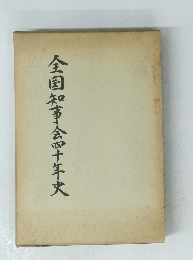 全国知事会四十年史